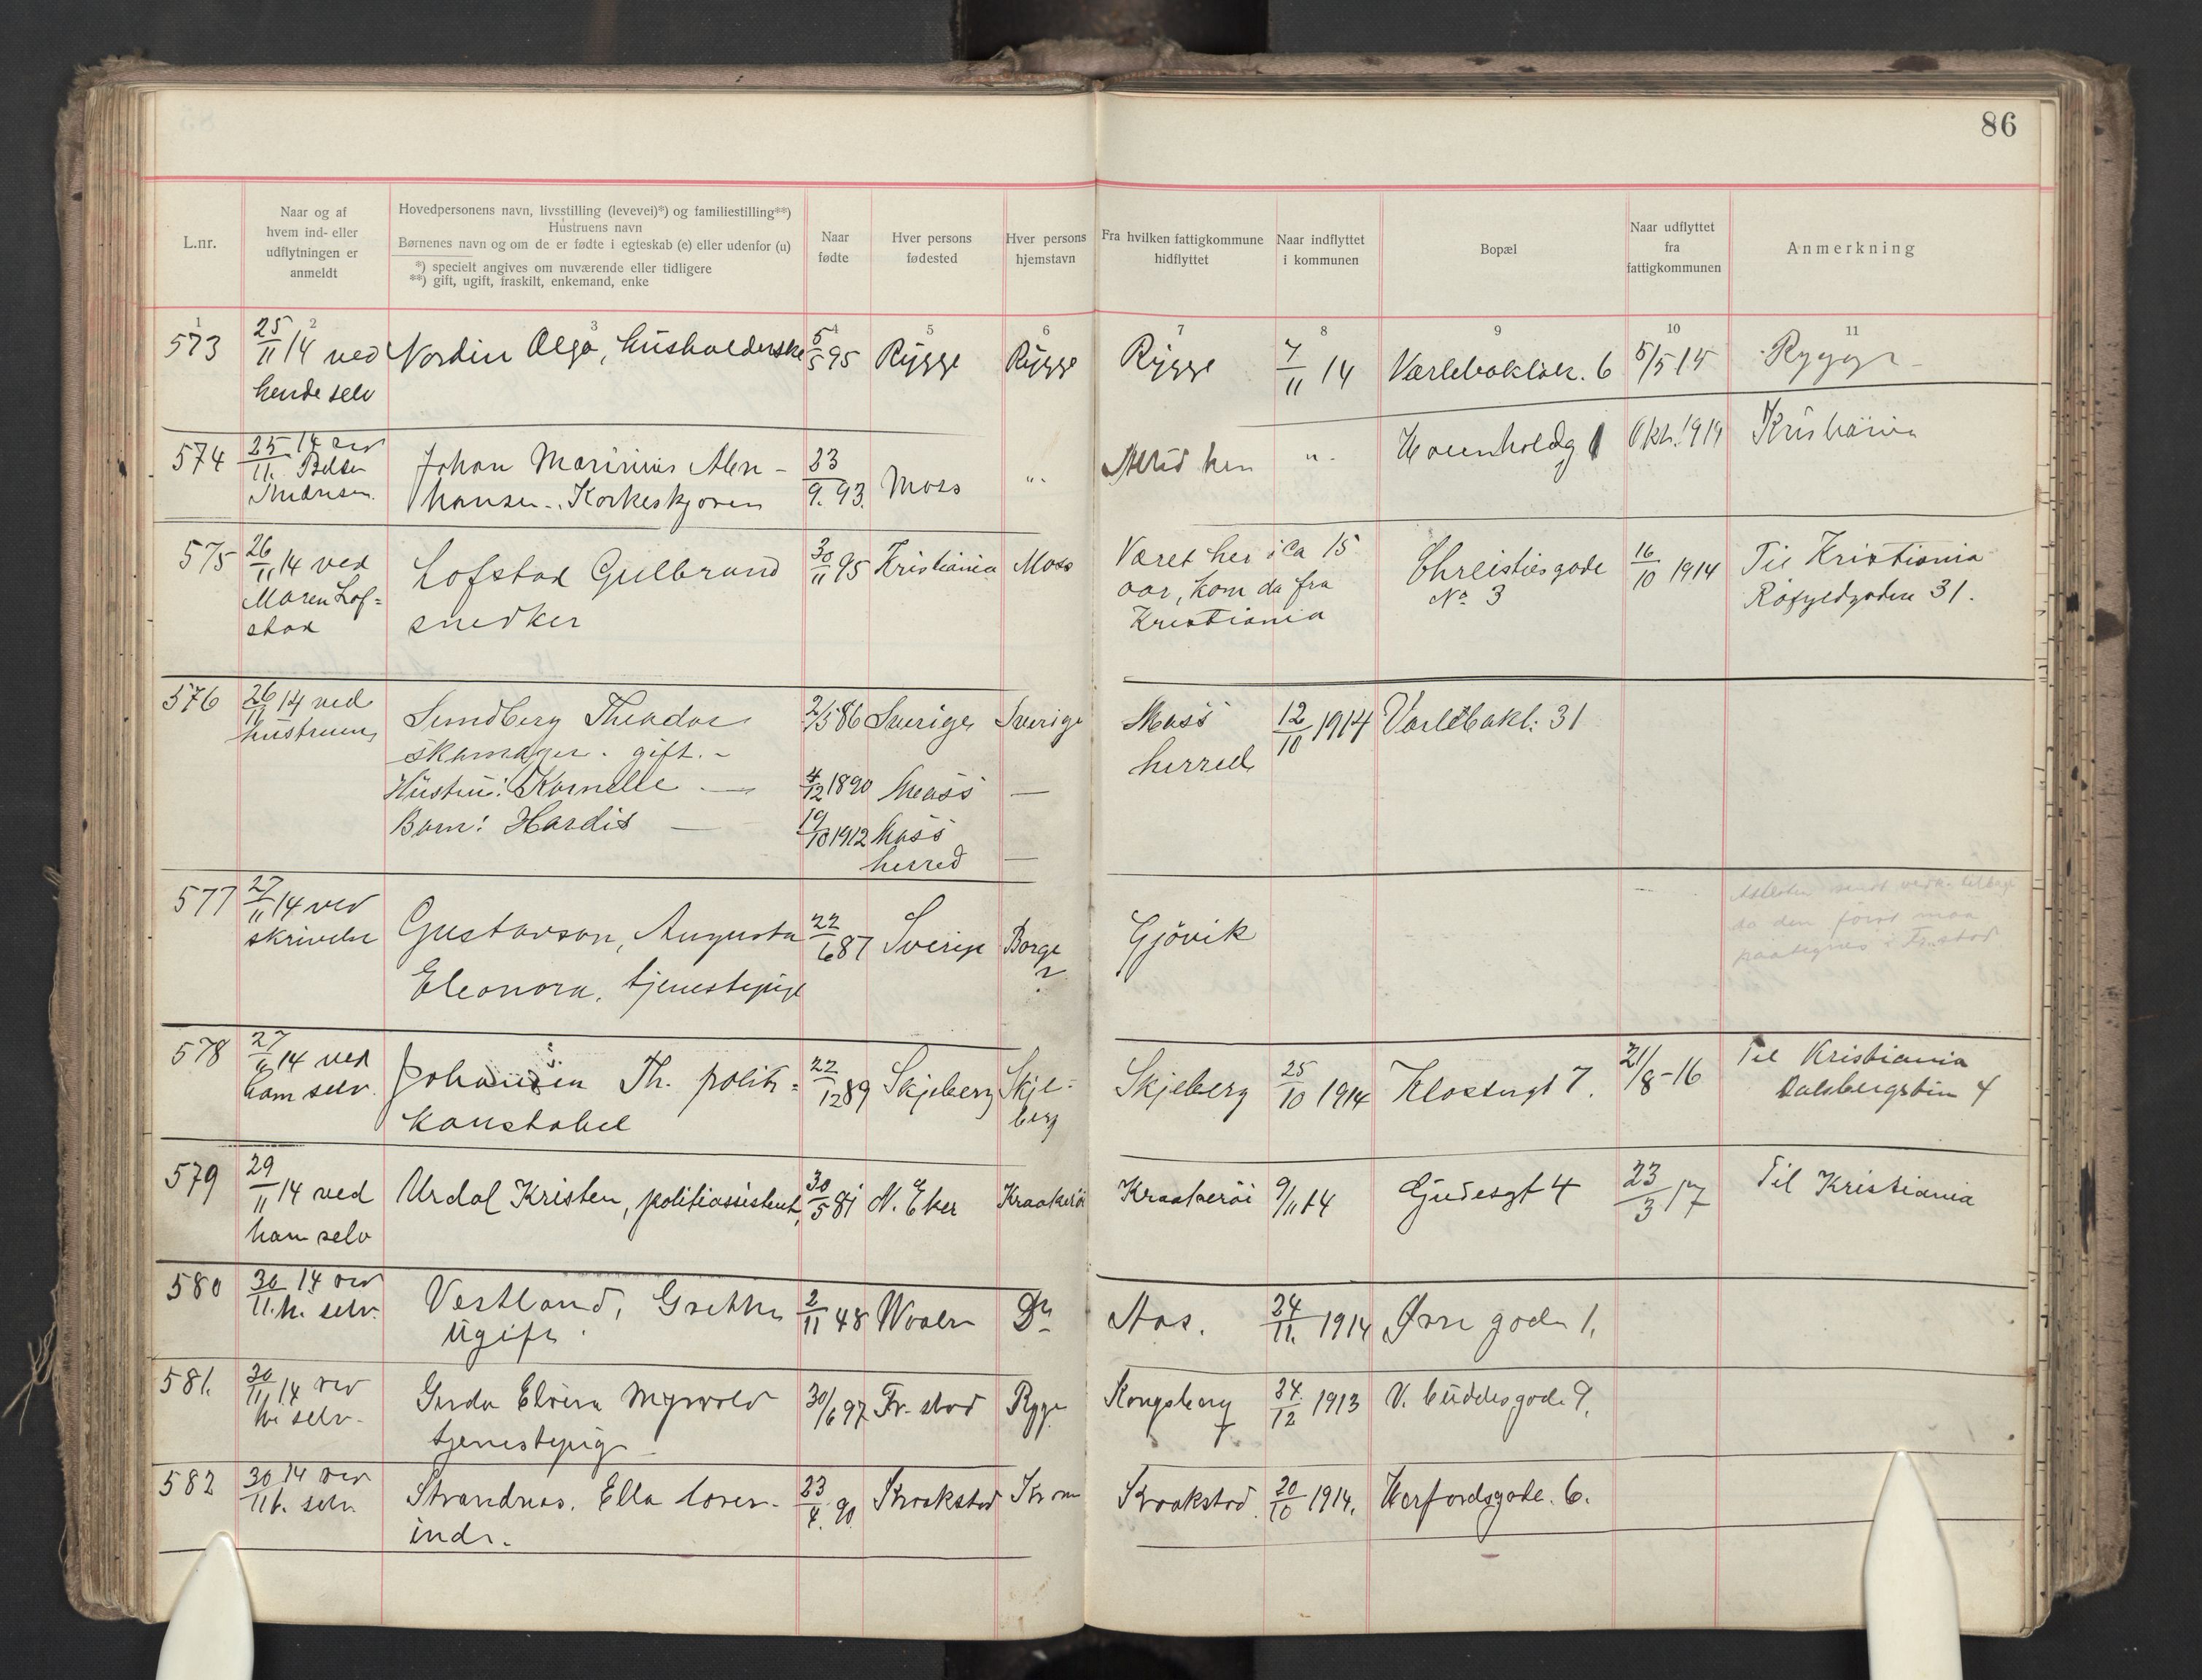 86
L.nr.
Naar og af
hvem ind- eller
udflytningen er
anmeldt
Hovedpersonens navn, livsstilling (levevei)*) og familiestilling**)
Hustruens navn
Børnenes navn og om de er fødte i egteskab (e) eller udenfor (u)
*) specielt angives om nuværende eller tidligere
**) gift, ugift, fraskilt, enkemand, enke
Naar
fødte
Hver persons
fødested
Hver persons
hjemstavn
Fra hvilken fattigkommune
hidflyttet
Naar indflyttet
i kommunen
Bopæl
Naar udflyttet
fra
fattigkommunen
Anmerkning
1 2 3 4 5 6 7 8 9 10 11
573 25/11 14 ved Nordin Olga, husholderske 5/5 95 Rygge Rygge Rygge 7/11 14 Værlebakken. 6 5/5 15 Rygge
hende selv
574 25/11 14 ved Johan Marinius 23/9. 93. Moss " Altid her " 1 Okt. 1914 Kristiania
hansen
575 26/11 14 ved Lofstad Gulbrand 30/11 95 Kristiania Moss Været her i ca 15 No 3 16/10 1914 Til Kristiania
Maren Lof=
stad
snedker
aar, kom da fra
Kristiania
31.
576 26/11 14 ved Sundberg Theodor 2/5 86 Sverige Sverige Moss 12/10 1914 Værlebakk: 31
hustruen
skomager. gift. herred
Hustru: Kornelie 4/12 1890 Moss —
Barn: Hardis — 19/10 1912 Moss
herred —
577 27/11 14 ved Gustavson, Augusta 22/6 87 Sverige Borge Gjövik
skrivelse
Eleonora, tjenestepige ?
578 27/11 14 ved Johansen Th. politi= 22/12 89 Skjeberg Skje- Skjeberg 25/10 1914 Klostergt 7. 21/8-16 Til Kristiania
ham selv. konstabel berg Dalsbergstien 4
579 29/11 14 ved Urdal Kristen, politiassistent, 30/5 81 N. Eker Kraakerøi Kraakerøi 9/11 14 Gudesgt 4 23/3 17 Til Kristiania
ham selv
580 30/11. 14 ved Vestland, Grethe 2/11 48 Vaaler Do Aas. 24/11. 1914 gade 1.
h. selv. Ugift.
581. 30/11 14 ved Gerda Elvira Myrvold 30/6 97 Fr. stad Rygge Kongsberg 24/12 1913 V. Buddesgade 9.
selv. tjenestepige
582 30/11 14 ved Strandnæs. Ella 23/4. 90. Kraakstad Kraakstad. 20/10 1914. gade. 6.
selv inde.